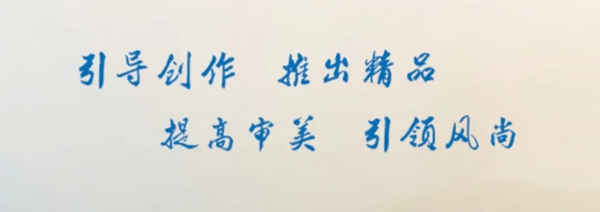 引导创作 推出精品
提高审美 引领风尚